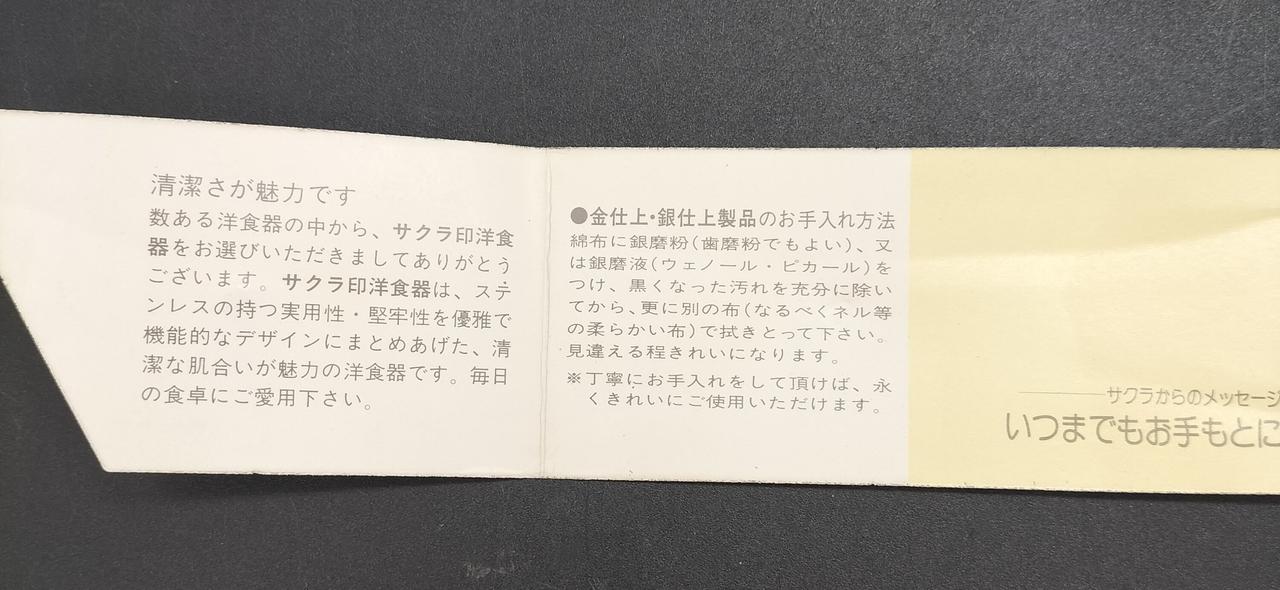 清潔さが魅力です
数ある洋食器の中から、サクラ印洋食
器をお選びいただきましてありがとう
ございます。サクラ印洋食器は、ステ
ンレスの持つ実用性・堅牢性を優雅で
機能的なデザインにまとめあげた、清
潔な肌合いが魅力の洋食器です。毎日
の食卓にご愛用下さい。
●金仕上・銀仕上製品のお手入れ方法
綿布に銀磨粉(歯磨粉でもよい)、又
は銀磨液(ウェノール・ピカール)を
つけ、黒くなった汚れを充分に除い
てから、更に別の布(なるべくネル等
の柔らかい布)で拭きとって下さい。
見違える程きれいになります。
※丁寧にお手入れをして頂けば、永
くきれいにご使用いただけます。
サクラからのメッセージ
いつまでもお手もとに